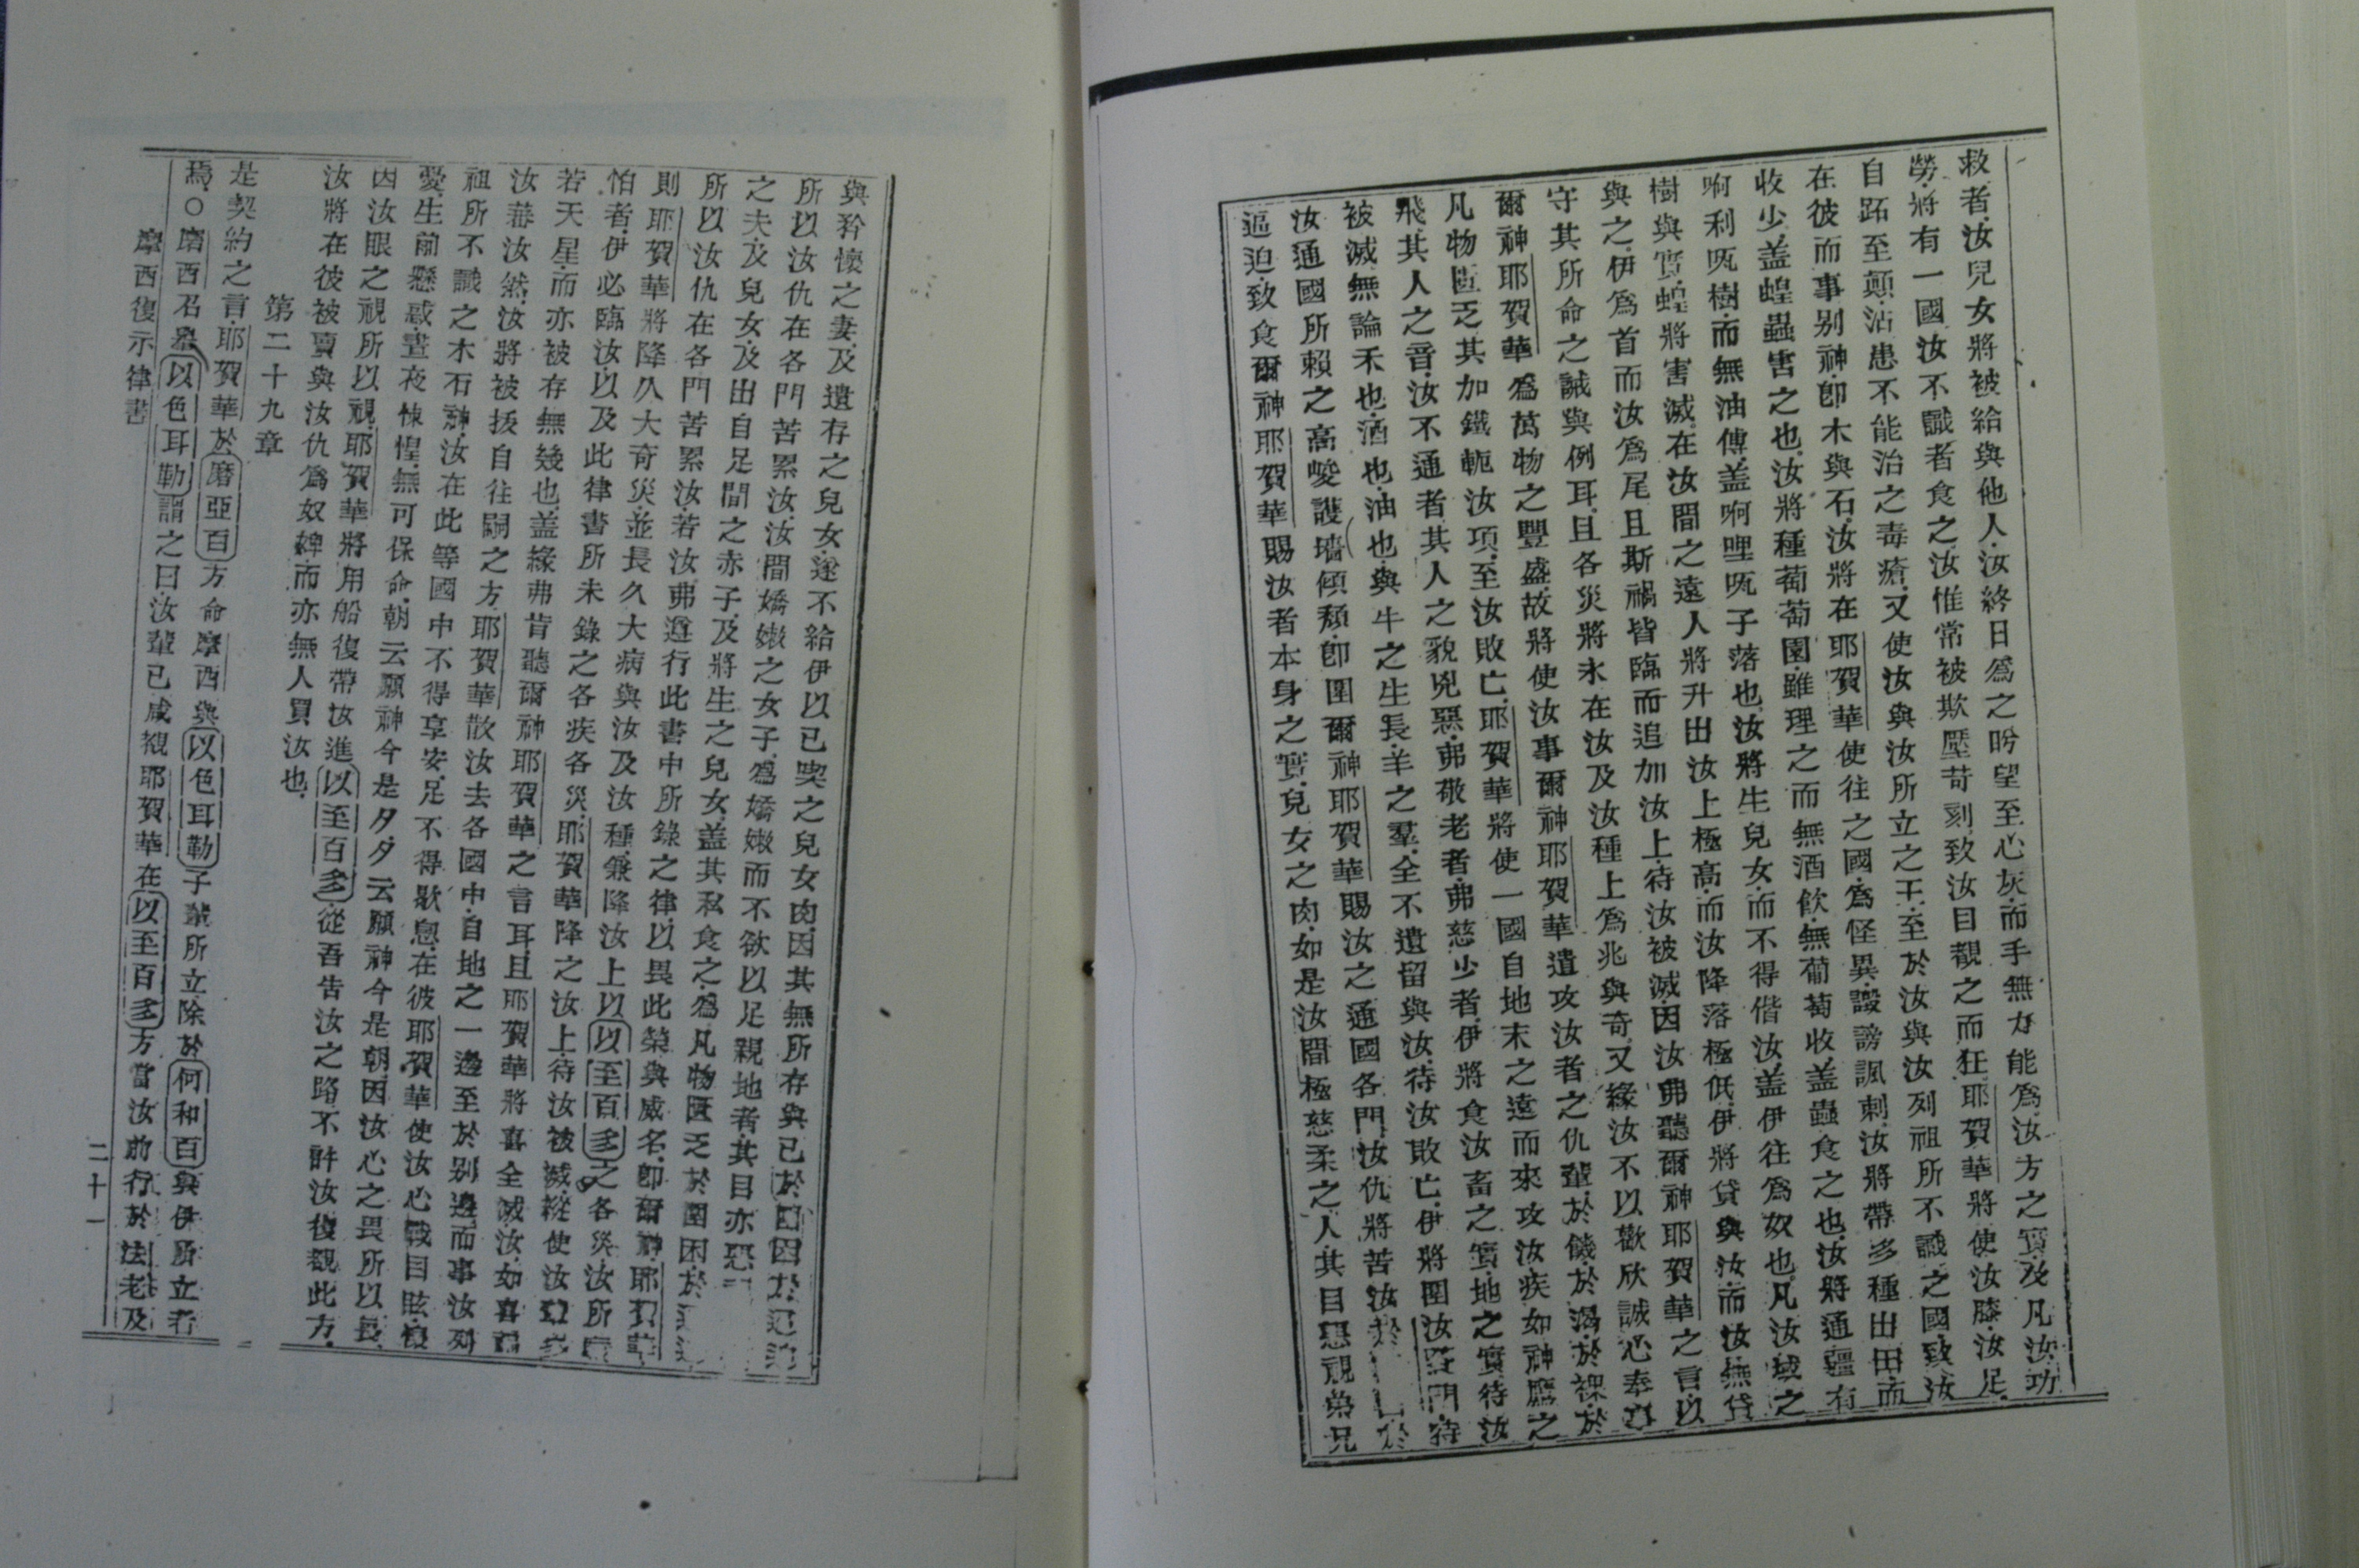 救者．汝兒女將被給與他人．汝終日爲之盼望至心灰．而手無力能爲．汝方之實．及凡汝功
勞．將有一國汝不識者食之．汝惟常被欺壓苛刻．致汝目覩之而狂．耶賀華將使汝膝．汝足．
自跖至顛．沾患不能治之毒瘡．又使汝與汝所立之王．至於汝與汝列祖所不識之國．致汝
在彼而事別神．卽木與石．汝將在耶賀華使往之國．爲怪異．譭謗諷刺．汝將帶多種出田．而
收少．盖蝗蟲害之也．汝將種萄萄園．雖理之而無酒飲．無葡萄收．盖蟲食之也．汝將通疆有
啊利㕖樹．而無油傅．盖啊哩㕖子落也．汝將生兒女．而不得偕汝．盖伊往爲奴也．凡汝域之
樹與實．蝗將害滅．在汝間之遠人將升出汝上極高．而汝降落極低．伊將貸與汝．而汝無貸
與之．伊爲首而汝爲尾．且斯禍皆臨而追加汝上．待汝被滅．因汝弗聽爾神耶賀華之言．以
守其所命之誡與例耳．且各災將永在汝及汝種上爲兆與奇．又緣汝不以歡欣誠心奉事
爾神耶賀華爲萬物之豐盛．故將使汝事爾神耶賀華遣攻汝者之仇輩．於饑．於渴．於裸．於
凡物匱乏．其加鐵軛汝項．至汝敗亡．耶賀華將使一國自地末之遠而來攻汝．疾如神鷹之
飛．其人之音．汝不通者．其人之貌兇惡．弗敬老者．弗慈少者．伊將食汝畜之實．地之實．待汝
被滅．無論禾也．酒也．油也．與牛之生長．羊之羣．全不遺留與汝．待汝敗亡．伊將圍汝各門．待
汝通國所賴之高峻護墻傾頹．卽圍爾神耶賀華賜汝之通國各門．汝仇將苦汝於 於
逼迫．致食爾神耶賀華賜汝者本身之實．兒女之肉．如是汝間極慈柔之人．其目惡視弟兄
與矜懷之妻．及遺存之兒女．遂不給伊以已喫之兒女肉．因其無所存與已．於困於逼迫
所以汝仇在各門苦累汝．汝間嬌嫩之女子．爲嬌嫩而不欲以足親地者．其目亦惡
之夫．及兒女．及出自足間之赤子．及將生之兒女．盖其私食之．爲凡物匱乏於圍困．於
所以汝仇在各門苦累汝．若汝弗遵行此書中所錄之律．以畏此榮與威名．卽爾神耶賀華
則耶賀華將降久大奇災．並長久大病與汝及汝種．兼降汝上以以至百多之各災．汝所
怕者．伊必臨汝．以及此律書所未錄之各疾各災．耶賀華降之汝上．待汝被滅．縱使汝
若天星．而亦被存無幾也．盖緣弗肯聽爾神耶賀華之言耳．且耶賀華將喜全滅汝．如喜
汝蕃汝然．汝將被拔自往嗣之方．耶賀華散汝去各國中．自地之一邊至於別邊．而事汝列
祖所不識之木石神．汝在此等國中不得享安．足不得歇息．在彼耶賀華使汝心戰目眩．懷
憂．生前懸惑．晝夜悚惶．無可保命．朝云願神今是夕．夕云願神今是朝．因汝心之畏所以長
因汝眼之視所以視．耶賀華將用船復帶汝進以至百多．從吾告汝之路．不許汝復觀此方．
汝將在彼被賣與汝仇爲奴婢．而亦無人買汝也．
第二十九章
是契約之言．耶賀華於磨亞百方命摩西與以色耳勒子輩所立．除於何和百與伊所立者
焉．○磨西召羣以色耳勒謂之曰．汝輩已咸視耶賀華在以至百多方當汝前．行於法老及
摩西復示律書
二十一